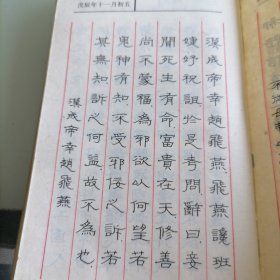 戊辰年十一月初五
漢成帝幸趙飛燕飛燕讒班
婕妤祝詛於是考問辭曰妾
聞死生有命富貴在天修善
尚不蒙福為邪欲以何望若
鬼神有知不受邪佞之訴若
其無知訴之何益故不為也
漢成帝幸趙飛燕